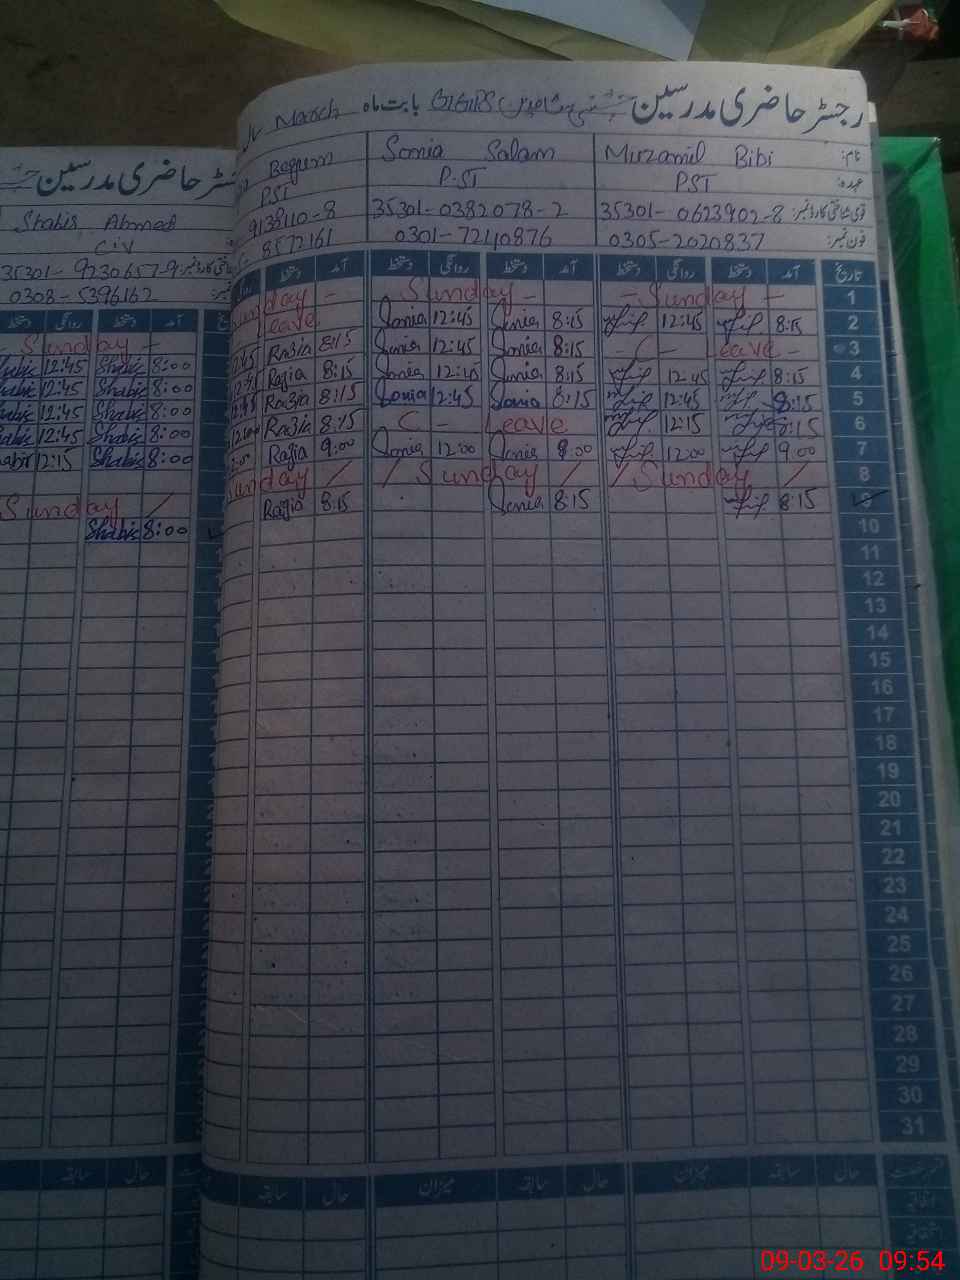 رجسٹر حاضری مدرسین GGPS بابت ماہ March
نام: Mirzamil Bibi Sonia Salam Begum
عہدہ: PST PST PST
قومی شناختی کارڈ نمبر: 35301-0623902-8 35301-0382078-2 9138110-8
فون نمبر: 0305-2020837 0301-7240876 8572161
تاریخ آمد دستخط روانگی دستخط آمد دستخط روانگی دستخط آمد دستخط
1 - Sunday - Sunday - Sunday -
2 8:15 12:45 8:15 Sonia 12:45 Sonia Leave
3 Leave - 8:15 Sonia 12:45 Sonia 8:15 Razia 12:45
4 8:15 12:45 8:15 Sonia 12:45 Sonia 8:15 Razia
5 8:15 12:45 8:15 Sonia 12:45 Sonia 8:15 Razia 12:45
6 8:15 12:15 Leave 8:15 Razia
7 9:00 12:00 9:00 Sonia 12:00 Sonia 9:00 Razia
8 / Sunday / / Sunday / / Sunday
9 8:15 8:15 Sonia 8:15 Razia
10
11
12
13
14
15
16
17
18
19
20
21
22
23
24
25
26
27
28
29
30
31
حال سابقہ میزان حال سابقہ میزان حال سابقہ
اتفاقیہ
رجسٹر حاضری مدرسین
Shabir Ahmed
35301-9230657-9
0308-5396162
آمد دستخط روانگی دستخط
Sunday -
8:00 Shabir 12:45 Shabir
8:00 Shabir 12:45 Shabir
8:00 Shabir 12:45 Shabir
8:00 Shabir 12:45 Shabir
8:00 Shabir 12:15 Shabir
Sunday /
8:00 Shabir
حال سابقہ
09-03-26 09:54